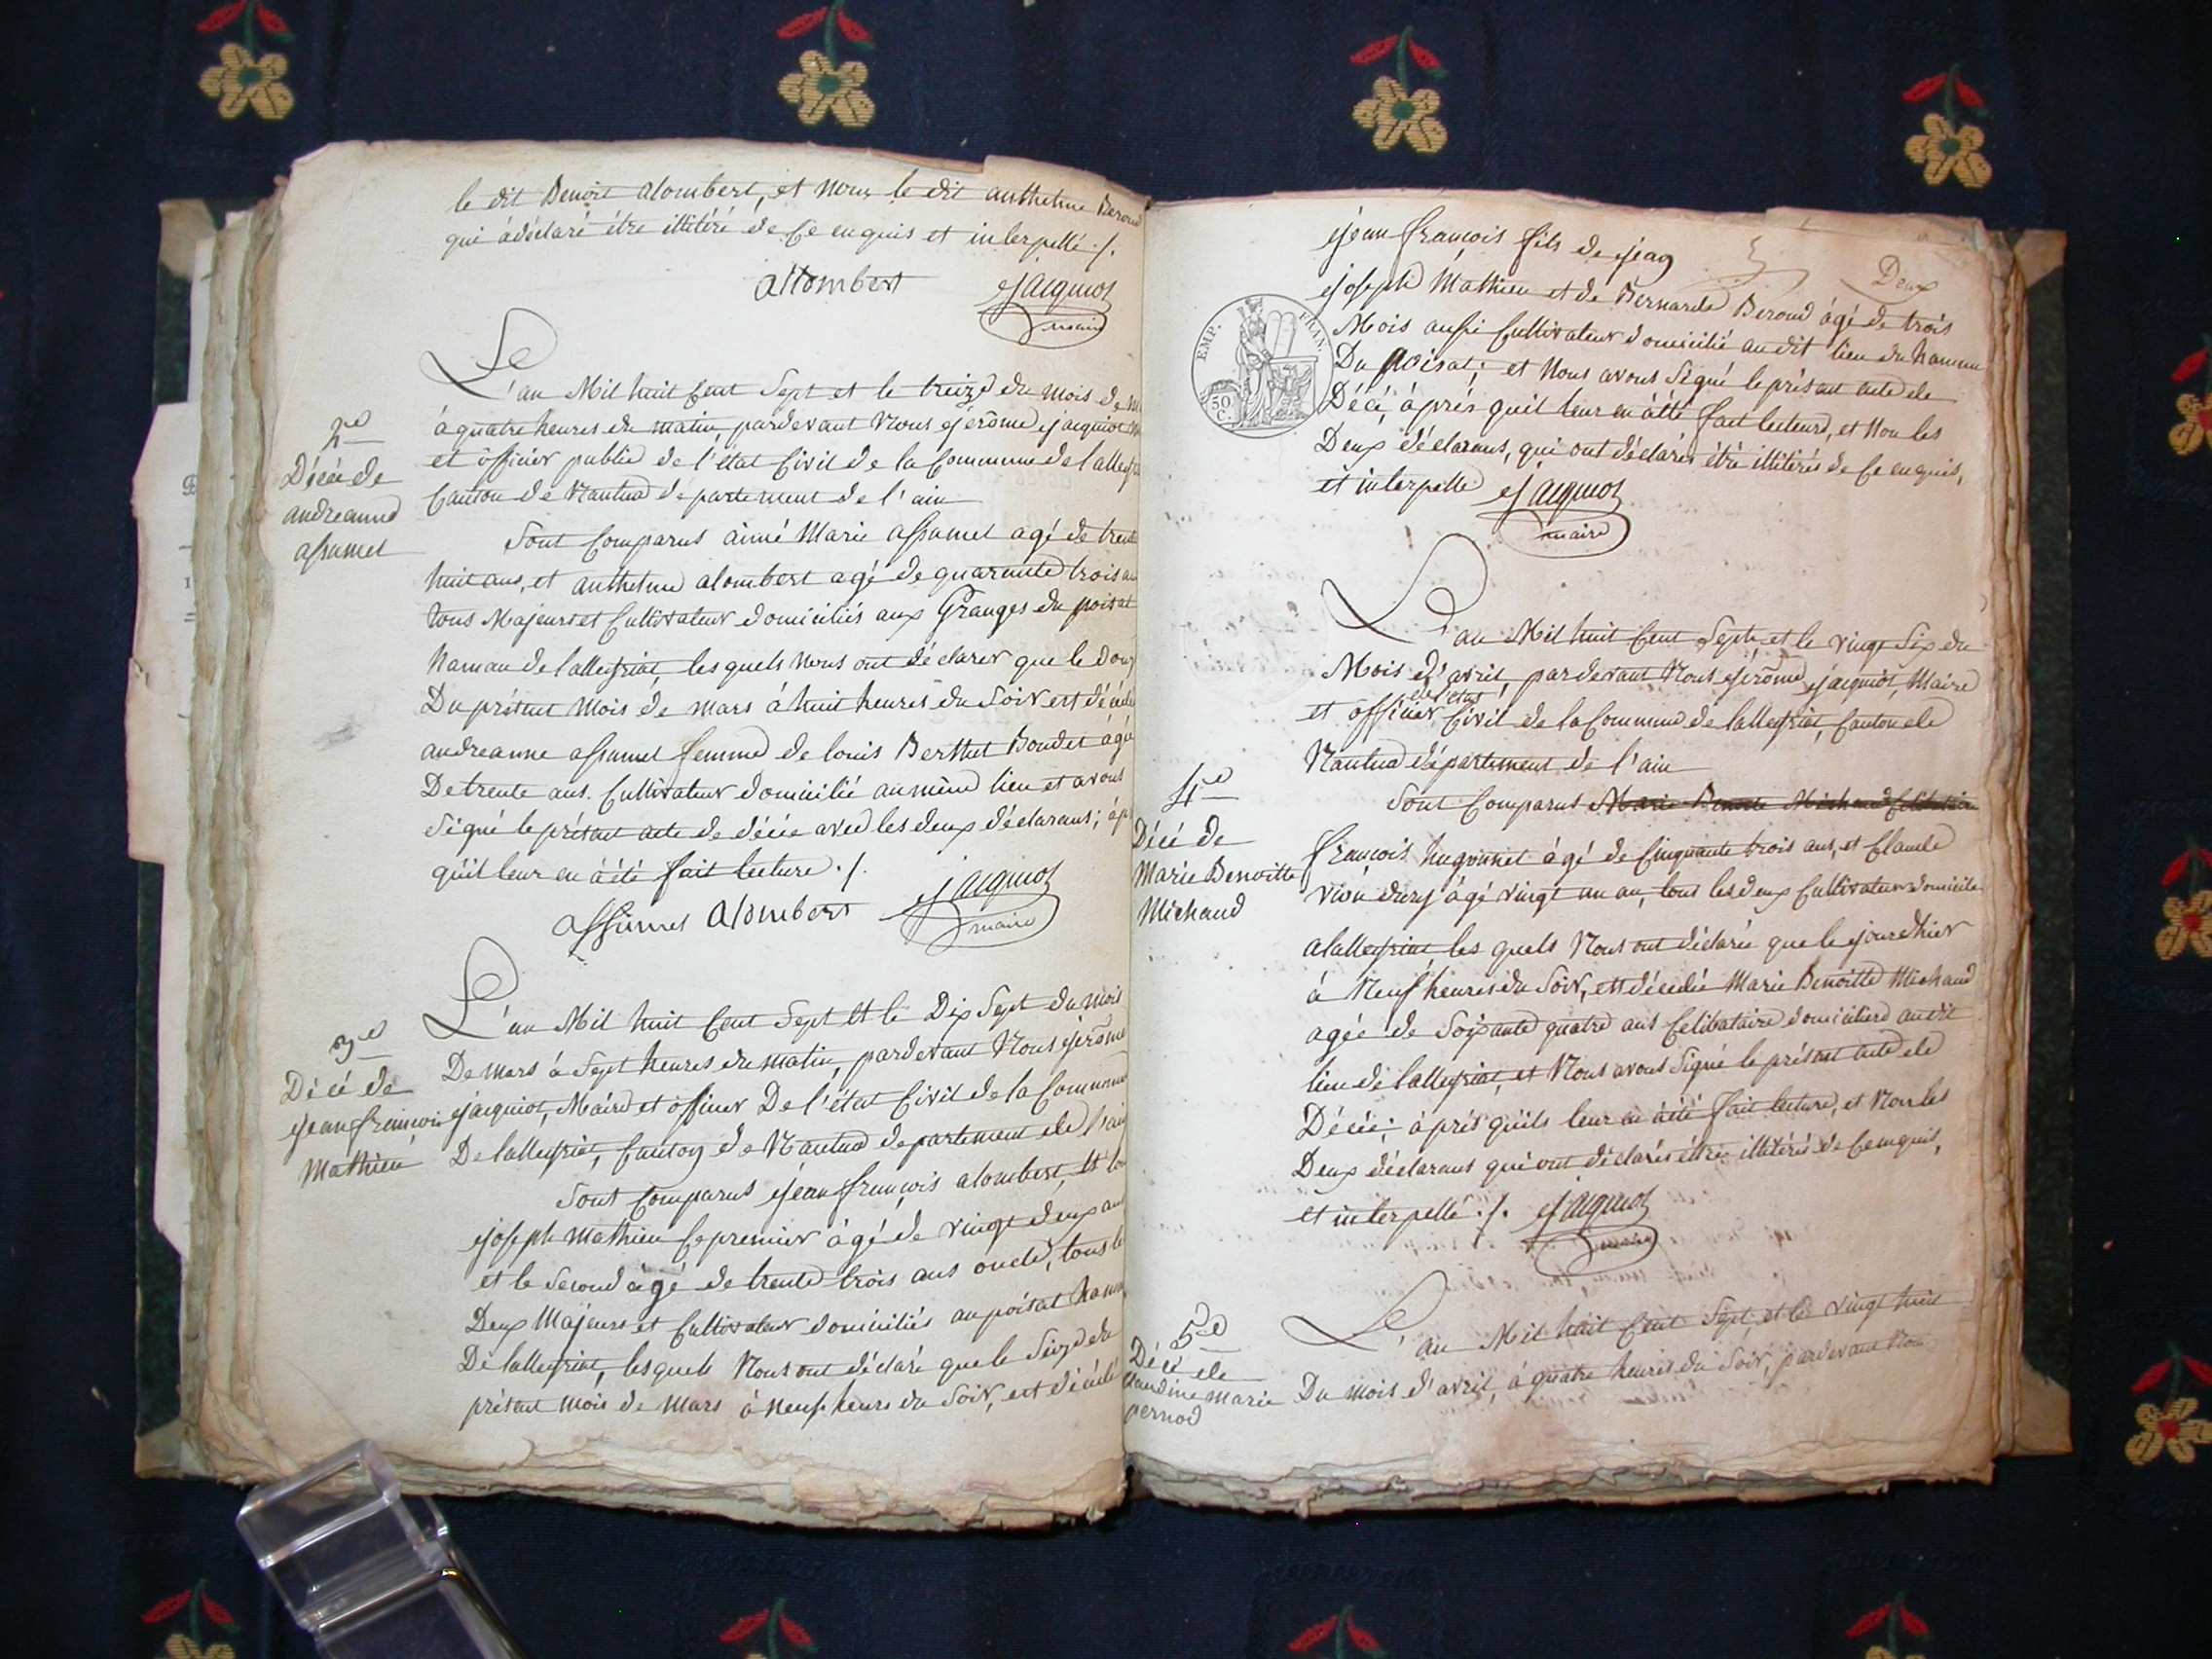 le dit Benoit alombert, et nous le dit anthelme Beroud
qui à déclaré être illitéré de Ce enquis et interpellé ./.
allombert
Jacquiot
maire
2e
Décée de
andreanne
assumel
L'an Mil huit Cent Sept et le treize du mois de
à quatre heures du matin, pardevant Nous jérôme jacquiot
et officier public de l'état Civil de la Commune de lalleyriat
Canton de Nantua departement de l'ain
Sont Comparus aimé Marie assumel agé de trente
huit ans, et anthelme alombert agé de quarante trois ans
tous Majeurs et Cultivateur domiciliés aux Granges du poisat
hamau de lalleyriat, lesquels nous ont déclarer que le douze
Du présent mois de mars à huit heures du Soir est décédé
andreanne assumel femme de louis Berthet Bondet agé
De trente ans. Cultivateur domicilié au même lieu et avons
Signé le présent acte de décée avec les deux déclarans; àprès
qu'il leur en à été fait lecture ./.
assumel alombert
Jacquiot
maire
3e
Décé de
jean françois
Mathieu
L'an Mil huit Cent Sept Et le Dix Sept du mois
De mars à Sept heures du matin, pardevant Nous jérôme
jacquiot, Maire et officier De l'état Civil de la Commune
De lalleyriat, Canton de Nantua departement de l'ain
Sont Comparus jean françois alombert, Et
joseph mathieu Le premier àgé de vingt deux ans
et le Second agé de trente trois ans oncle, tous les
Deux Majeurs et Cultivateur domiciliés au poisat hamau
De lalleyriat, lesquels Nous ont déclaré que le Seize du
présent mois de mars à neuf heures du Soir, est décédé
Deux
jean françois fils de jean
joseph Mathieu et de Bernarde Beroud àgé de trois
Mois aussi Cultivateur domicilié au dit lieu du hamau
Du poisat; et Nous avons Signé le présent acte de
Décé, àprès qu'il leur en à été fait lecture, et Non les
Deux déclarans, qui ont déclarés être illitérés de Ce enquis,
et interpellé
Jacquiot
maire
EMP. FRAN.
50 C.
4e
Décé de
Marie Benoitte
Michaud
L'an Mil huit Cent Sept et le vingt Six du
Mois d'avril, pardevant Nous jérôme jacquiot, Maire
de l'état
et officier Civil de la Commune de lalleyriat, Canton de
Nantua département de l'ain
Sont Comparus Marie Benoite Michaud Celibataire
françois hugonnet àgé de Cinquante trois ans, et Claude
àgé vingt un an, tous les deux Cultivateur domicilés
a lalleyriat, les quels Nous ont déclarée que le jourdhier
à Neuf heures du Soir, est décedée Marie Benoitte Michaud
agée de Soixante quatre ans Celibataire domiciliere au dit
lieu de lalleyriat, et Nous avons Signé le présent acte de
Décée; àprès qu'ils leur en àété fait lecture, et Non les
Deux déclarans qui ont déclarés être illitérés de Ce enquis,
et interpellé ./.
Jacquiot
maire
5e
Décé de
Claudine marie
pernod
L'an Mil huit Cent Sept et le vingt huit
Du mois d'avril, à quatre heures du Soir, pardevant Nous